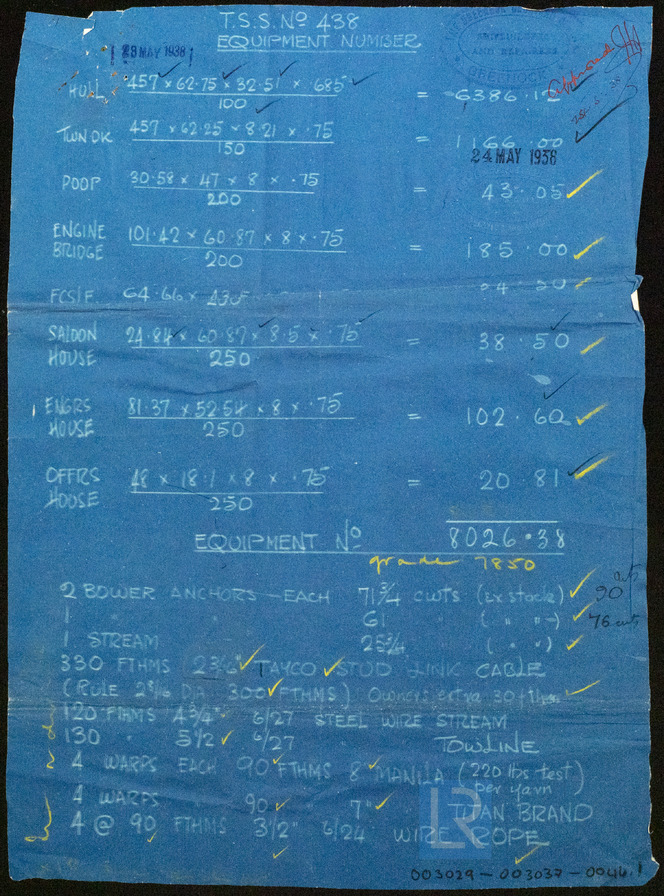 T.S.S. Nº 438
EQUIPMENT NUMBER
28 MAY 1938
GREENOCK
Approved
HULL 457 × 62·75 × 32·51 × ·685 / 100 = 6386·12
TWN DK 457 × 62·25 × 8·21 × ·75 / 150 = 1166·00
24 MAY 1938
POOP 30·58 × 47 × 8 × ·75 / 200 = 43·05
ENGINE BRIDGE 101·42 × 60·87 × 8 × ·75 / 200 = 185·00
FCSLE 64·66 ×
SALOON HOUSE 24·84 × 60·87 × 8·5 × ·75 / 250 = 38·50
ENGRS HOUSE 81·37 × 52·54 × 8 × ·75 / 250 = 102·60
OFFRS HOUSE 48 × 18·1 × 8 × ·75 / 250 = 20·81
EQUIPMENT Nº 8026·38
grade 7850
2 BOWER ANCHORS — EACH 71¾ CWTS (ex stock) 90
1 " 61 " ( " " ) 76 cwts
1 STREAM " ( " " )
330 FTHMS 2 3/16" TAYCO STUD LINK CABLE
(RULE 2 3/16 DIA 300 FTHMS) Owners extra 30
120 FTHMS 4¾" 6/27 STEEL WIRE STREAM
130 " 5½ 6/27 TOWLINE
4 WARPS EACH 90 FTHMS 8" MANILA (220 lbs test)
per yarn
4 WARPS 90 7" TITAN BRAND
4 @ 90 FTHMS 3½" 6/24 WIRE ROPE
LR
003029 - 003037 - 0046.1